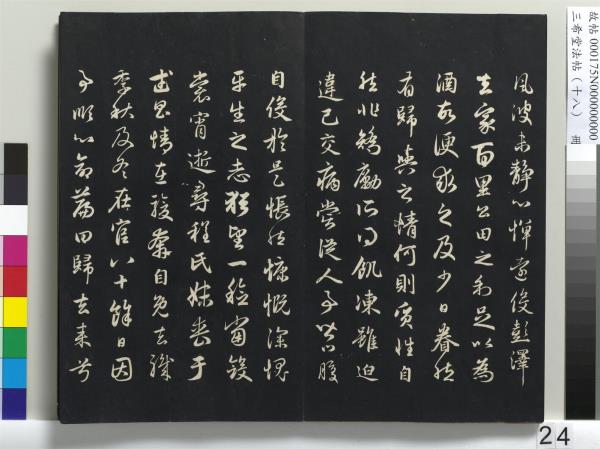 故帖 000175N000000000
三希堂法帖(十八) 冊
風波未靜心憚遠役彭澤
去家百里公田之利足以為
酒故便求之及少日眷然
有歸與之情何則質性自
然非矯勵所得飢凍雖迫
違己交病嘗從人事皆口腹
自役於是悵然慷慨深愧
平生之志猶望一稔當斂
裳宵逝尋程氏妹喪于
武昌情在駿奔自免去職
季秋及冬在官八十餘日因
事順心命篇曰歸去來兮
24